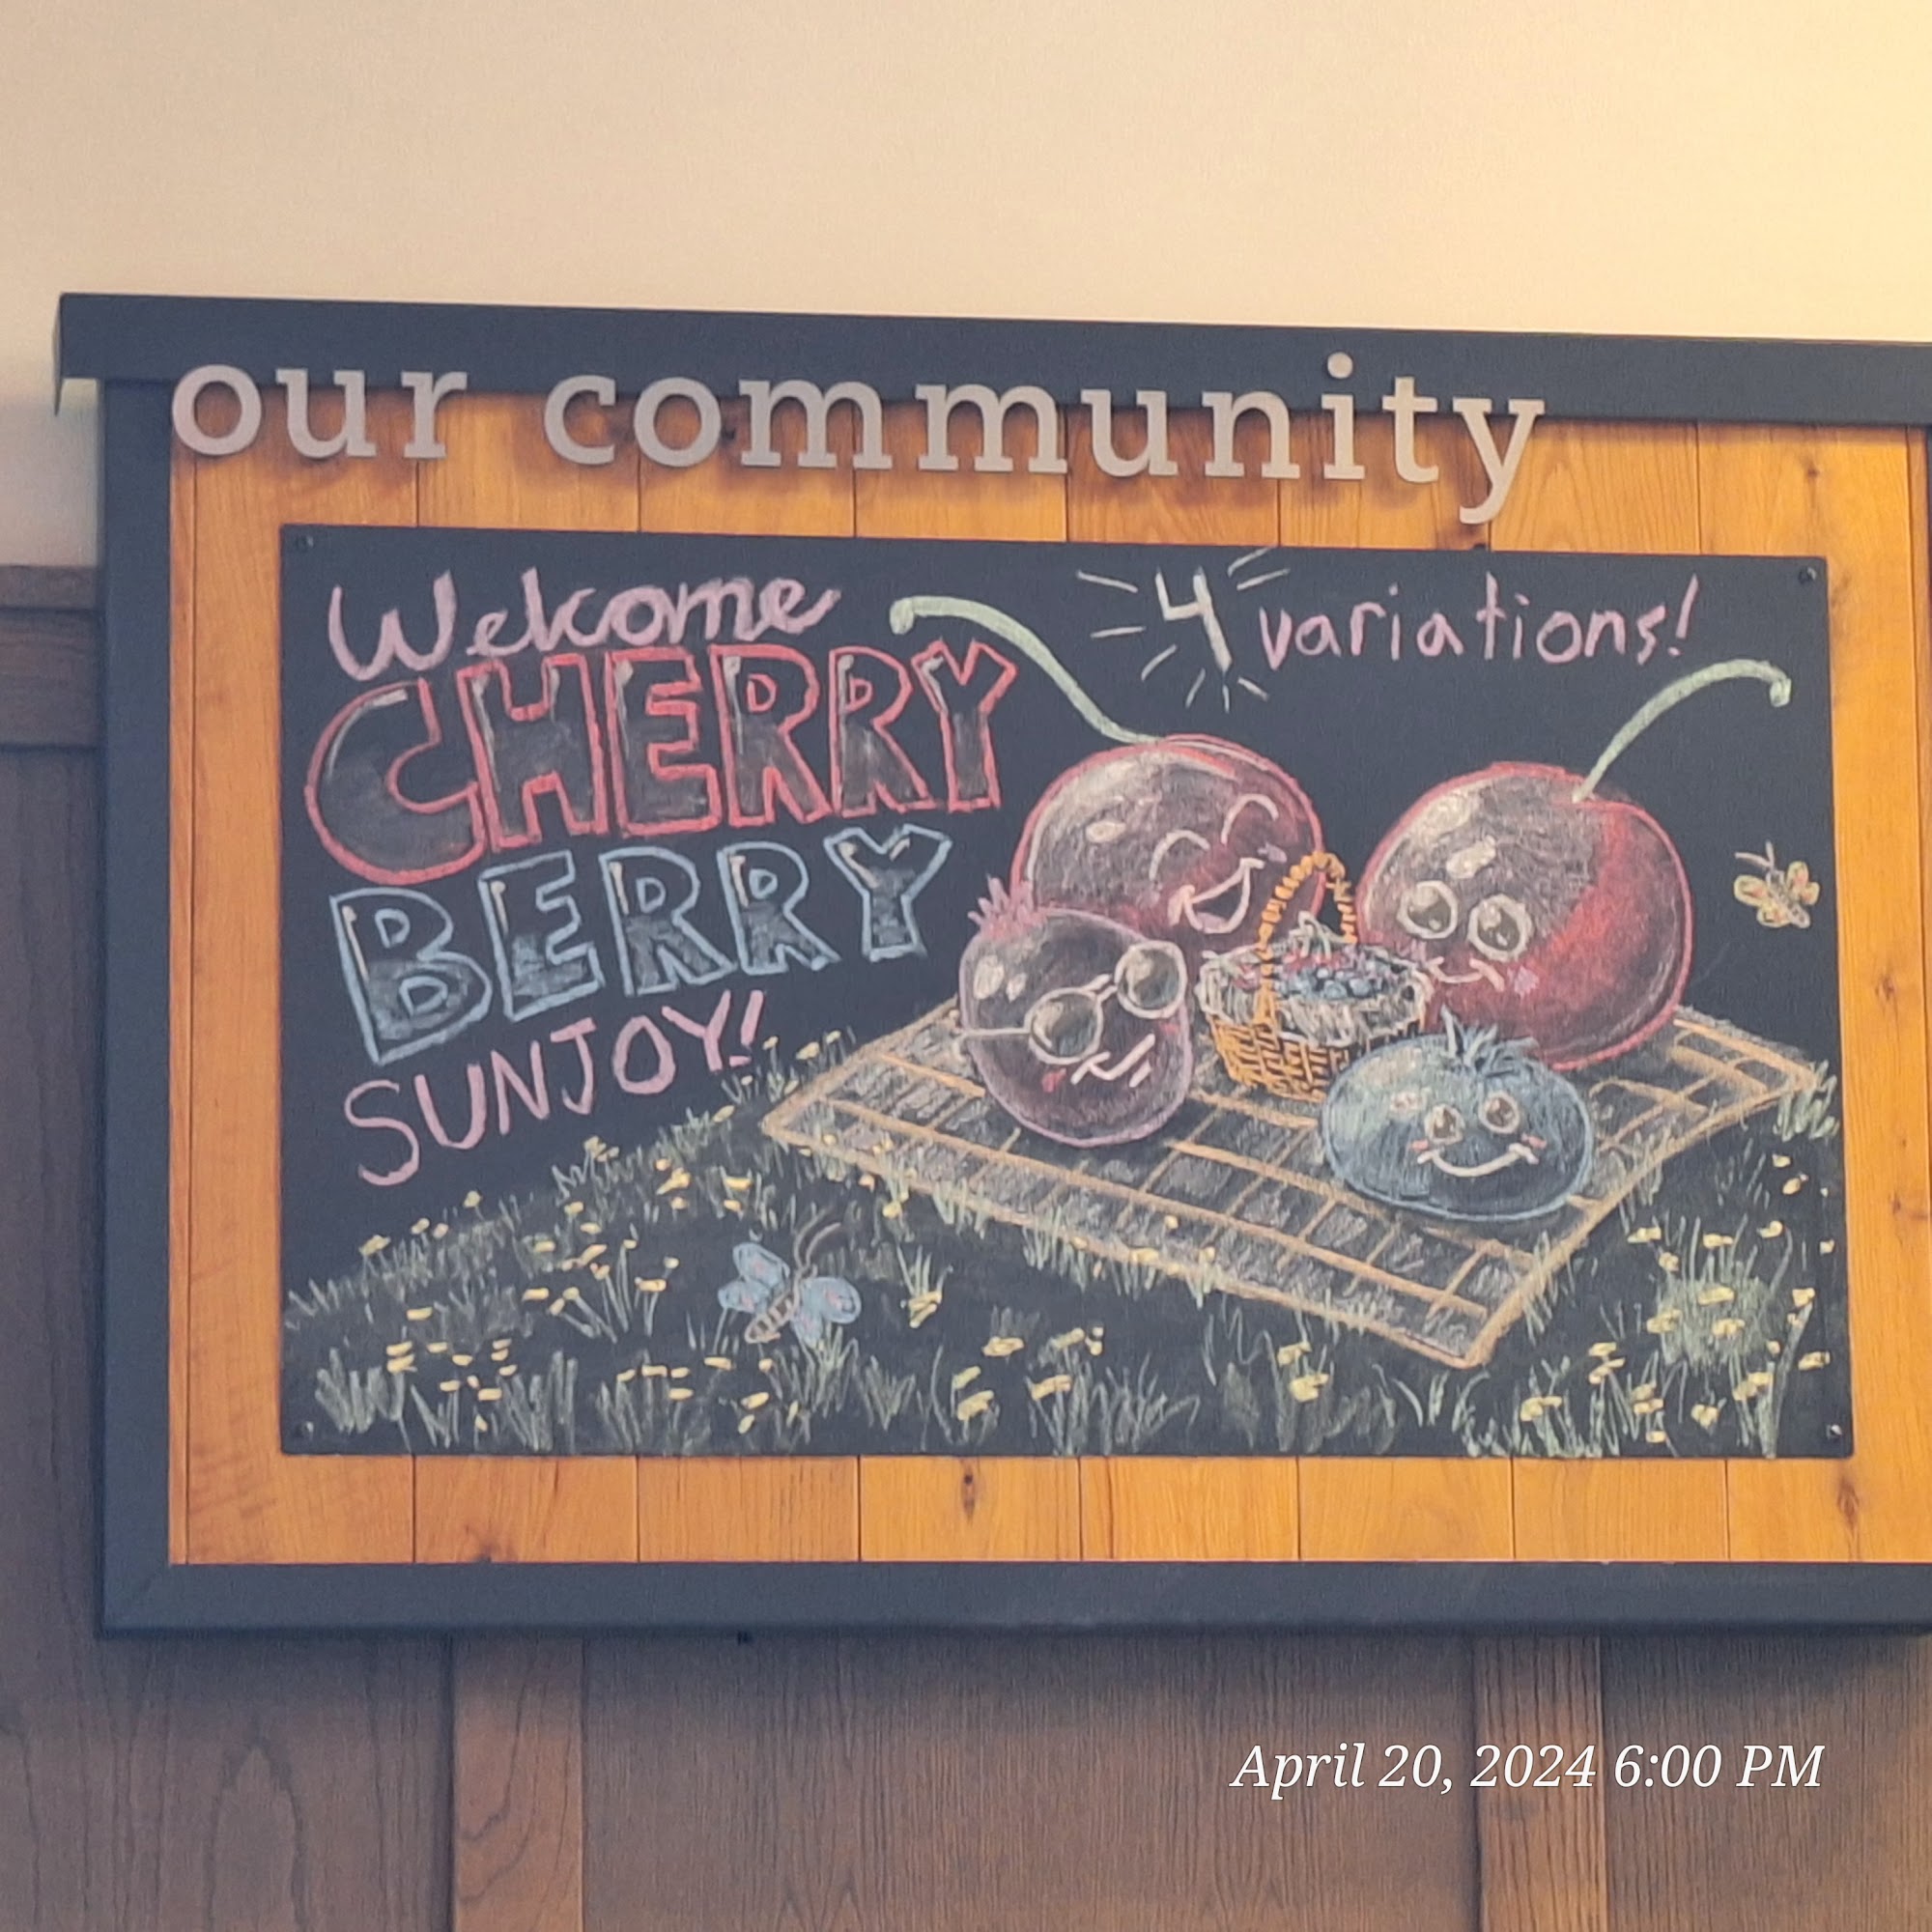 our community
Welcome
CHERRY
BERRY
SUNJOY!
4 variations!
April 20, 2024 6:00 PM